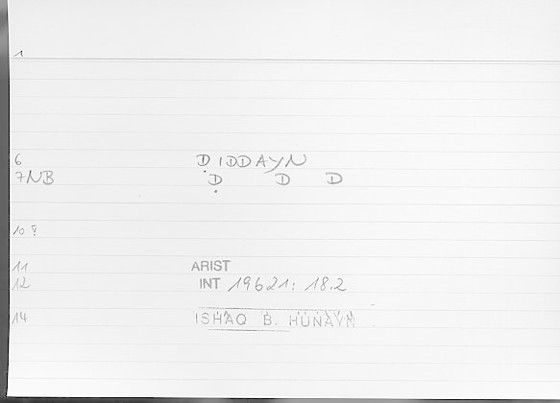 1
6 ḌIDDAYN
7NB Ḍ D D
10 ?
11 ARIST
12 INT 19621: 18.2
14 ISHAQ B. HUNAYN